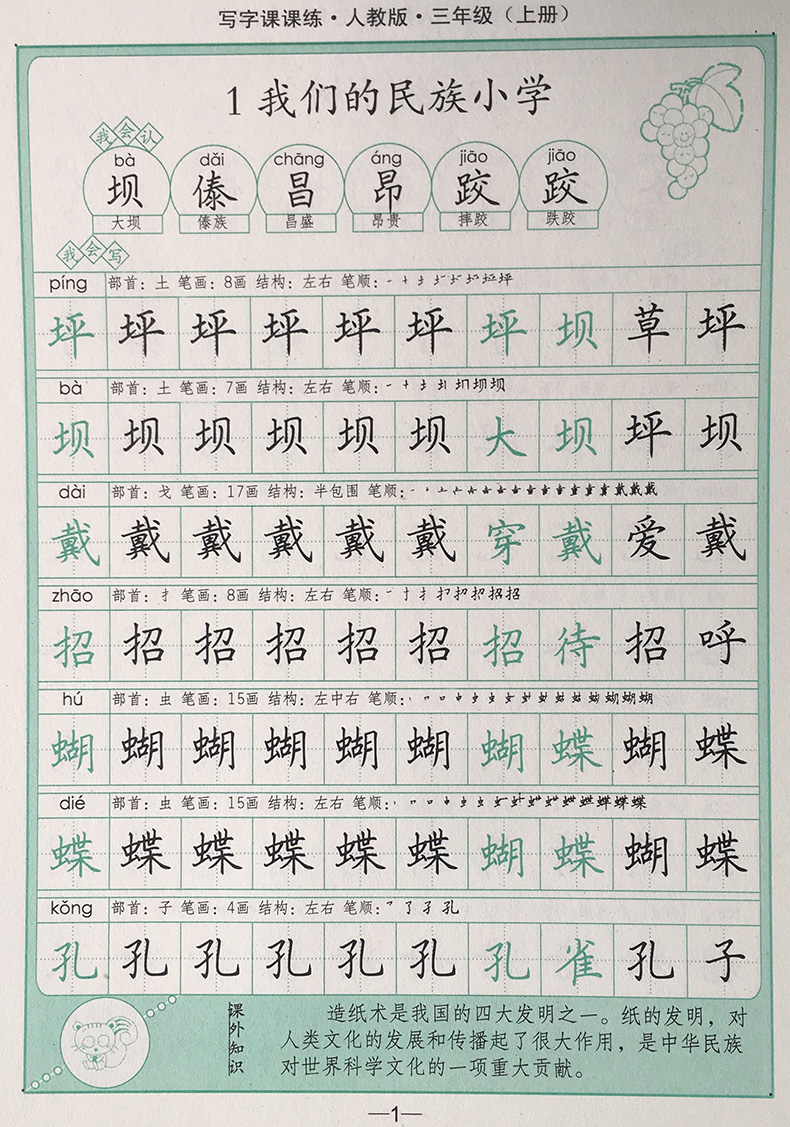 写字课课练·人教版·三年级（上册）
1 我们的民族小学
我会认
bà dǎi chāng áng jiāo jiāo
坝 傣 昌 昂 跤 跤
大坝 傣族 昌盛 昂贵 摔跤 跌跤
我会写
píng 部首：土 笔画：8画 结构：左右 笔顺：
坪 坪 坪 坪 坪 坪 坪 坝 草 坪
bà 部首：土 笔画：7画 结构：左右 笔顺：
坝 坝 坝 坝 坝 坝 大 坝 坪 坝
dài 部首：戈 笔画：17画 结构：半包围 笔顺：
戴 戴 戴 戴 戴 戴 穿 戴 爱 戴
zhāo 部首：扌 笔画：8画 结构：左右 笔顺：
招 招 招 招 招 招 招 待 招 呼
hú 部首：虫 笔画：15画 结构：左中右 笔顺：
蝴 蝴 蝴 蝴 蝴 蝴 蝴 蝶 蝴 蝶
dié 部首：虫 笔画：15画 结构：左右 笔顺：
蝶 蝶 蝶 蝶 蝶 蝶 蝴 蝶 蝴 蝶
kǒng 部首：子 笔画：4画 结构：左右 笔顺：
孔 孔 孔 孔 孔 孔 孔 雀 孔 子
课外知识
造纸术是我国的四大发明之一。纸的发明，对
人类文化的发展和传播起了很大作用，是中华民族
对世界科学文化的一项重大贡献。
—1—